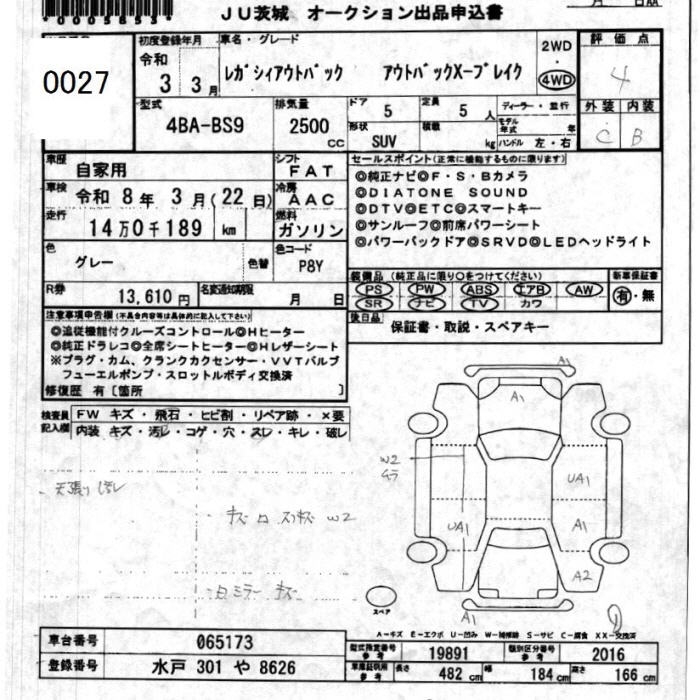 *00058553*
JU茨城 オークション出品申込書
月 日AA
0027
初度登録年月 車名・グレード
令和 3 3月
レガシィアウトバック アウトバックX-ブレイク
2WD
・
4WD
評価点
4
外装 内装
C B
型式 4BA-BS9
排気量 2500 CC
ドア 5
定員 5 人
形状 SUV
積載 kg
ディーラー・並行
モデル年式 年
ハンドル 左・右
車歴 自家用
シフト FAT
車検 令和 8年 3月(22日)
冷房 AAC
走行 14万0千189 km
燃料 ガソリン
色 グレー 色替
色コード P8Y
R券 13,610円
名変通知期限 月 日
セールスポイント(正常に機能するものに限ります)
◎純正ナビ◎F・S・Bカメラ
◎DIATONE SOUND
◎DTV◎ETC◎スマートキー
◎サンルーフ◎前席パワーシート
◎パワーバックドア◎SRVD◎LEDヘッドライト
装備品(純正品に限り○をつけてください)
PS PW ABS エアB AW
SR ナビ TV カワ
新車保証書
有・無
後日品 保証書・取説・スペアキー
注意事項申告欄(不具合内容等は具体的に記入して下さい)
◎追従機能付クルーズコントロール◎Hヒーター
◎純正ドラレコ◎全席シートヒーター◎Hレザーシート
※プラグ・カム、クランクカクセンサー・VVTバルブ
フューエルポンプ・スロットルボディ交換済
修復歴 有〔箇所 〕
検査員記入欄
FW キズ・飛石・ヒビ割・リペア跡・×要
内装 キズ・汚レ・コゲ・穴・スレ・キレ・破レ
A1
A1
W2
ムラ
UA1
UA1
A1
A2
A1
スペア
W2
ミラー キズ
A-キズ E-エクボ U-凹み W-補修跡 S-サビ C-腐食 XX-交換済
車台番号 065173
登録番号 水戸 301 や 8626
型式指定番号 参考 19891
類別区分番号 参考 2016
車庫証明用 参考 長さ 482 cm 幅 184 cm 高さ 166 cm